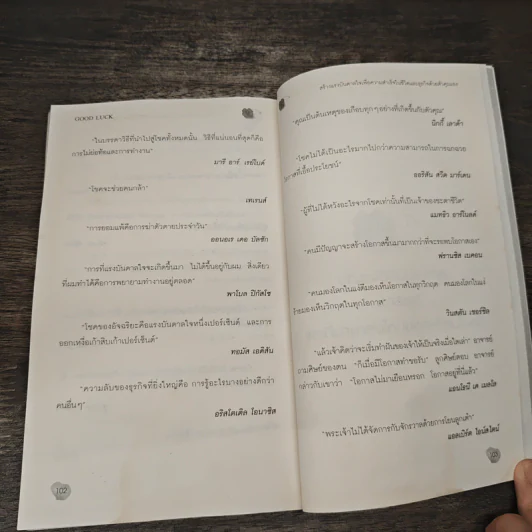 GOOD LUCK
"ในบรรดาวิธีที่นำไปสู่โชคทั้งหมดนั้น วิธีที่แน่นอนที่สุดก็คือ
การไม่ย่อท้อและการทำงาน"
มารี อาร์. เรย์โนด์
"โชคจะช่วยคนกล้า"
เทเรนส์
"การยอมแพ้คือการฆ่าตัวตายประจำวัน"
ออนอเร เดอ บัลซัก
"การที่แรงบันดาลใจจะเกิดขึ้นมา ไม่ได้ขึ้นอยู่กับผม สิ่งเดียว
ที่ผมทำได้คือการพยายามทำงานอยู่ตลอด"
พาโบล ปิกัสโซ
"โชคของอัจฉริยะคือแรงบันดาลใจหนึ่งเปอร์เซ็นต์ และการ
ออกเหงื่อเก้าสิบเก้าเปอร์เซ็นต์"
ทอมัส เอดิสัน
"ความลับของธุรกิจที่ยิ่งใหญ่คือ การรู้อะไรบางอย่างดีกว่า
คนอื่นๆ"
อริสโตเติล โอนาซิส
102
"คุณเป็นต้นเหตุของเกือบทุกๆอย่างที่เกิดขึ้นกับตัวคุณ"
นิกกี้ เลาด้า
"โชคไม่ได้เป็นอะไรมากไปกว่าความสามารถในการฉกฉวย
โอกาสที่เอื้อประโยชน์"
ออริสัน สวีต มาร์เดน
"ผู้ที่ไม่ได้หวังอะไรจากโชคเท่านั้นที่เป็นเจ้าของชะตาชีวิต"
แมทธิว อาร์โนลด์
"คนมีปัญญาจะสร้างโอกาสขึ้นมามากกว่าที่จะรอพบโอกาสเอง"
ฟรานซิส เบคอน
"คนมองโลกในแง่ดีมองเห็นโอกาสในทุกวิกฤต คนมองโลกในแง่
ร้ายมองเห็นวิกฤตในทุกโอกาส"
วินสตัน เชอร์ชิล
"แล้วเจ้าคิดว่าจะเริ่มทำฝันของเจ้าให้เป็นจริงเมื่อใดเล่า" อาจารย์
ถามศิษย์ของตน "ก็เมื่อมีโอกาสทำขอรับ" ลูกศิษย์ตอบ อาจารย์
กล่าวกับเขาว่า "โอกาสไม่มาเยือนหรอก โอกาสอยู่ที่นี่แล้ว"
แอนโธนี เด เมลโล
"พระเจ้าไม่ได้จัดการกับจักรวาลด้วยการโยนลูกเต๋า"
แอลเบิร์ต ไอน์สไตน์
103